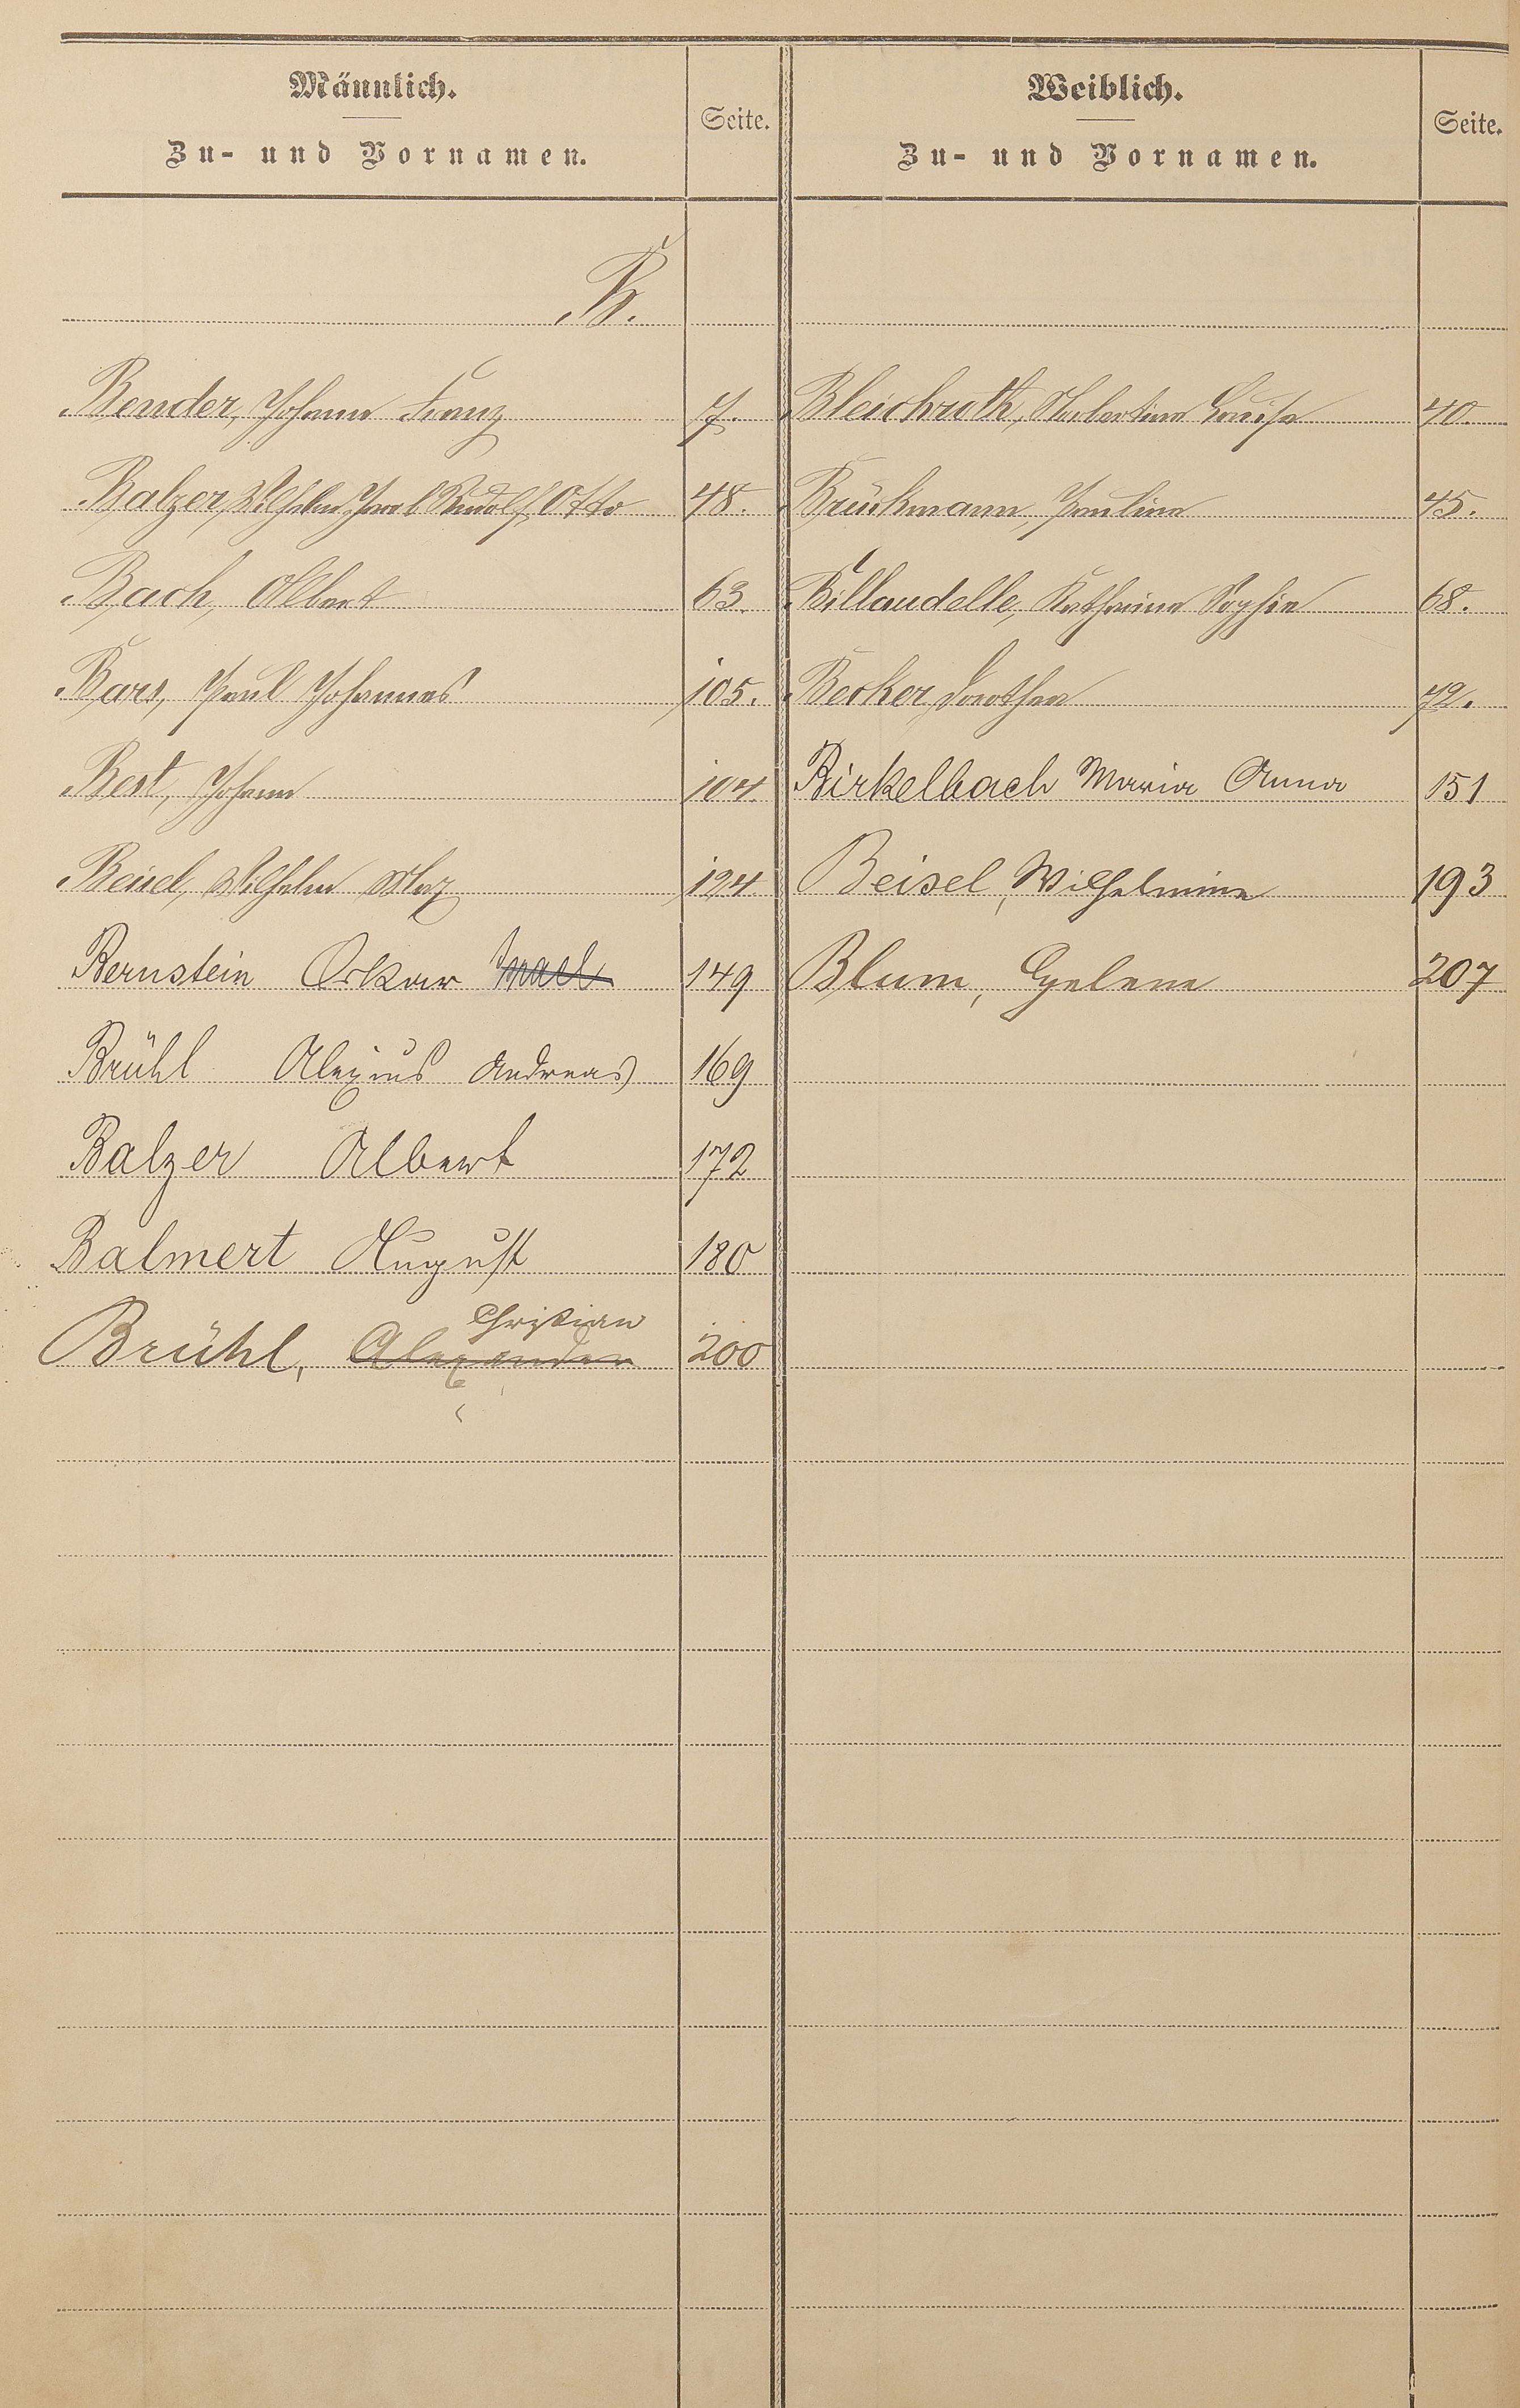 Männlich.
Zu- und Vornamen.
Seite.
Weiblich.
Zu- und Vornamen.
Seite.
B.
Bender, Johann Franz 7. Bleichroth, Hubertine Louise 40.
Balzer, Wilhelm Karl Rudolf Otto 48. Brückmann, Pauline 45.
Bach, Albert 63. Billaudelle, Katharina Sophie 68.
Bars, Paul Johannes 105. Becker, Dorothea 72.
Best, Johann 104. Birkelbach Maria Anna 151
Wilhelm Max 124. Beisel, Wilhelmine 193
Bernstein Oskar Israel 149 Blum, Helene 207
Brühl Alexius Andreas 169
Balzer Albert 172
Balmert August 180
Christian
Brühl, Alexander 200